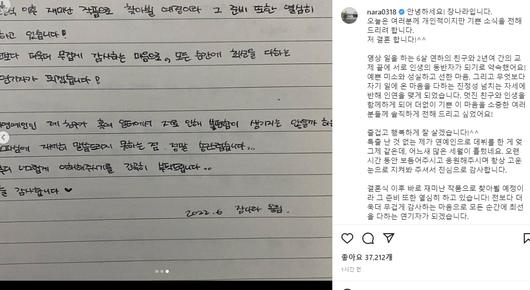 재미난 작품으로 찾아뵐 예정이라 그 준비 또한 열심히
하고 있습니다!
더욱 무겁게 감사하는 마음으로, 모든 순간에 최선을 다하는
연기자가 되겠습니다!
일에 지장
생기지는 않을까
자세히 말씀드리지 못하는 점
너그럽게 이해해주시기를 간곡히 부탁드립니다..
감사합니다 ♥
2022. 6 장나라 올림.
nara0318 안녕하세요! 장나라입니다.
오늘은 여러분께 개인적이지만 기쁜 소식을 전해
드리려 합니다.
저 결혼 합니다!^^
영상 일을 하는 6살 연하의 친구와 2년여 간의 교
제 끝에 서로 인생의 동반자가 되기로 약속했어요!
예쁜 미소와 성실하고 선한 마음, 그리고 무엇보다
자기 일에 온 마음을 다하는 진정성 넘치는 자세에
반해 인연을 맺게 되었습니다. 멋진 친구와 인생을
함께하게 되어 더없이 기쁜 이 마음을 소중한 여러
분들께 솔직하게 전해 드리고 싶었어요!
즐겁고 행복하게 잘 살겠습니다!^^
특출 난 것 없는 제가 연예인으로 데뷔를 한 게 엊
그제 같은데, 어느새 많은 세월이 흘렀네요. 오랜
시간 동안 보듬어주시고 응원해주시며 항상 고운
눈으로 지켜봐 주셔서 진심으로 감사합니다.
결혼식 이후 바로 재미난 작품으로 찾아뵐 예정이
라 그 준비 또한 열심히 하고 있습니다! 전보다 더
욱더 무겁게 감사하는 마음으로 모든 순간에 최선
을 다하는 연기자가 되겠습니다.
좋아요 37,212개
1시간 전